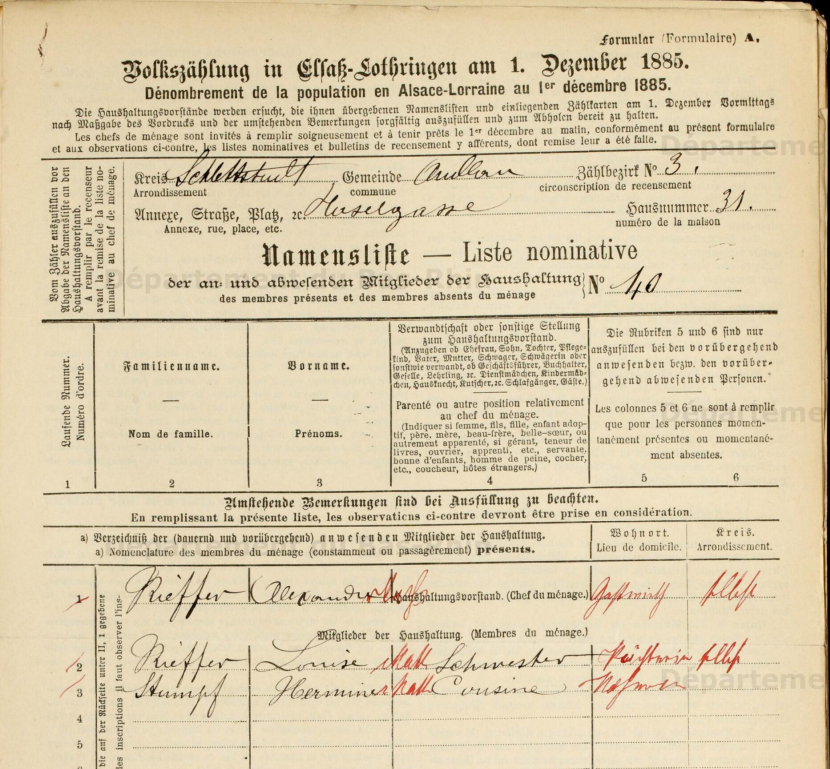 Formular (Formulaire) A.
Volkszählung in Elsaß-Lothringen am 1. Dezember 1885.
Dénombrement de la population en Alsace-Lorraine au 1er décembre 1885.
Die Haushaltungsvorstände werden ersucht, die ihnen übergebenen Namenslisten und einliegenden Zählkarten am 1. Dezember Vormittags
nach Maßgabe des Vordrucks und der umstehenden Bemerkungen sorgfältig auszufüllen und zum Abholen bereit zu halten.
Les chefs de ménage sont invités à remplir soigneusement et à tenir prêts le 1er décembre au matin, conformément au présent formulaire
et aux observations ci-contre, les listes nominatives et bulletins de recensement y afférents, dont remise leur a été faite.
Vom Zähler auszufüllen vor
Abgabe der Namensliste an den
Haushaltungsvorstand.
A remplir par le recenseur
avant la remise de la liste no-
minative au chef de ménage.
Kreis Schlettstadt Gemeinde Andlau Zählbezirk No 3.
Arrondissement commune circonscription de recensement
Annexe, Straße, Platz, ꝛc. Haselgasse Hausnummer 31.
Annexe, rue, place, etc. numéro de la maison
Namensliste — Liste nominative
der an- und abwesenden Mitglieder der Haushaltung
des membres présents et des membres absents du ménage
No 40
Laufende Nummer.
Numéro d'ordre.
1
Familienname.
Nom de famille.
2
Vorname.
Prénoms.
3
Verwandtschaft oder sonstige Stellung
zum Haushaltungsvorstand.
(Anzugeben ob Ehefrau, Sohn, Tochter, Pflege-
kind, Vater, Mutter, Schwager, Schwägerin oder
sonstwie verwandt, ob Geschäftsführer, Buchhalter,
Geselle, Lehrling, ꝛc. Dienstmädchen, Kindermäd-
chen, Hausknecht, Kutscher, ꝛc. Schlafgänger, Gäste.)
Parenté ou autre position relativement
au chef du ménage.
(Indiquer si femme, fils, fille, enfant adop-
tif, père, mère, beau-frère, belle-sœur, ou
autrement apparenté, si gérant, teneur de
livres, ouvrier, apprenti, etc., servante,
bonne d'enfants, homme de peine, cocher,
etc., coucheur, hôtes étrangers.)
4
Die Rubriken 5 und 6 sind nur
auszufüllen bei den vorübergehend
anwesenden bezw. den vorüber-
gehend abwesenden Personen.
Les colonnes 5 et 6 ne sont à remplir
que pour les personnes momen-
tanément présentes ou momentané-
ment absentes.
5 6
Umstehende Bemerkungen sind bei Ausfüllung zu beachten.
En remplissant la présente liste, les observations ci-contre devront être prise en considération.
a) Verzeichniß der (dauernd und vorübergehend) anwesenden Mitglieder der Haushaltung.
a) Nomenclature des membres du ménage (constamment ou passagèrement) présents.
Wohnort.
Lieu de domicile.
Kreis.
Arrondissement.
die auf der Rückseite unter II, 1 gegebene
des inscriptions il faut observer l'ins-
1 Rieffer Alexandre Haushaltungsvorstand. (Chef du ménage.) Gastwirth selbst
Mitglieder der Haushaltung. (Membres du ménage.)
2 Rieffer Louise Schwester selbst
3 Stumpf Hermine Cousine
4
5
6
Département du Bas-Rhin
Départeme
Départeme
Départeme